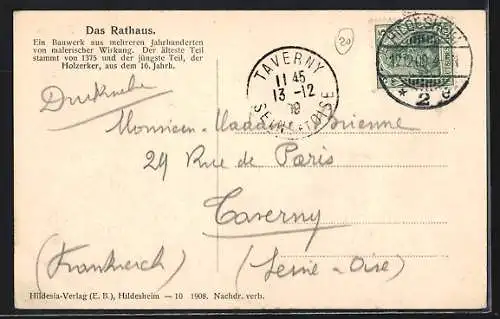 Das Rathaus.
Ein Bauwerk aus mehreren Jahrhunderten
von malerischer Wirkung. Der älteste Teil
stammt von 1375 und der jüngste Teil, der
Holzerker, aus dem 16. Jahrh.
20
HILDESHEIM
* 2 g
TAVERNY
11 45
13 -12
SEINE-ET-OISE
Drucksache
Monsieur-Madame Brienne
29 Rue de Paris
Taverny
(Frankreich) (Seine-Oise)
Hildesia-Verlag (E. B.), Hildesheim — 10 1908. Nachdr. verb.